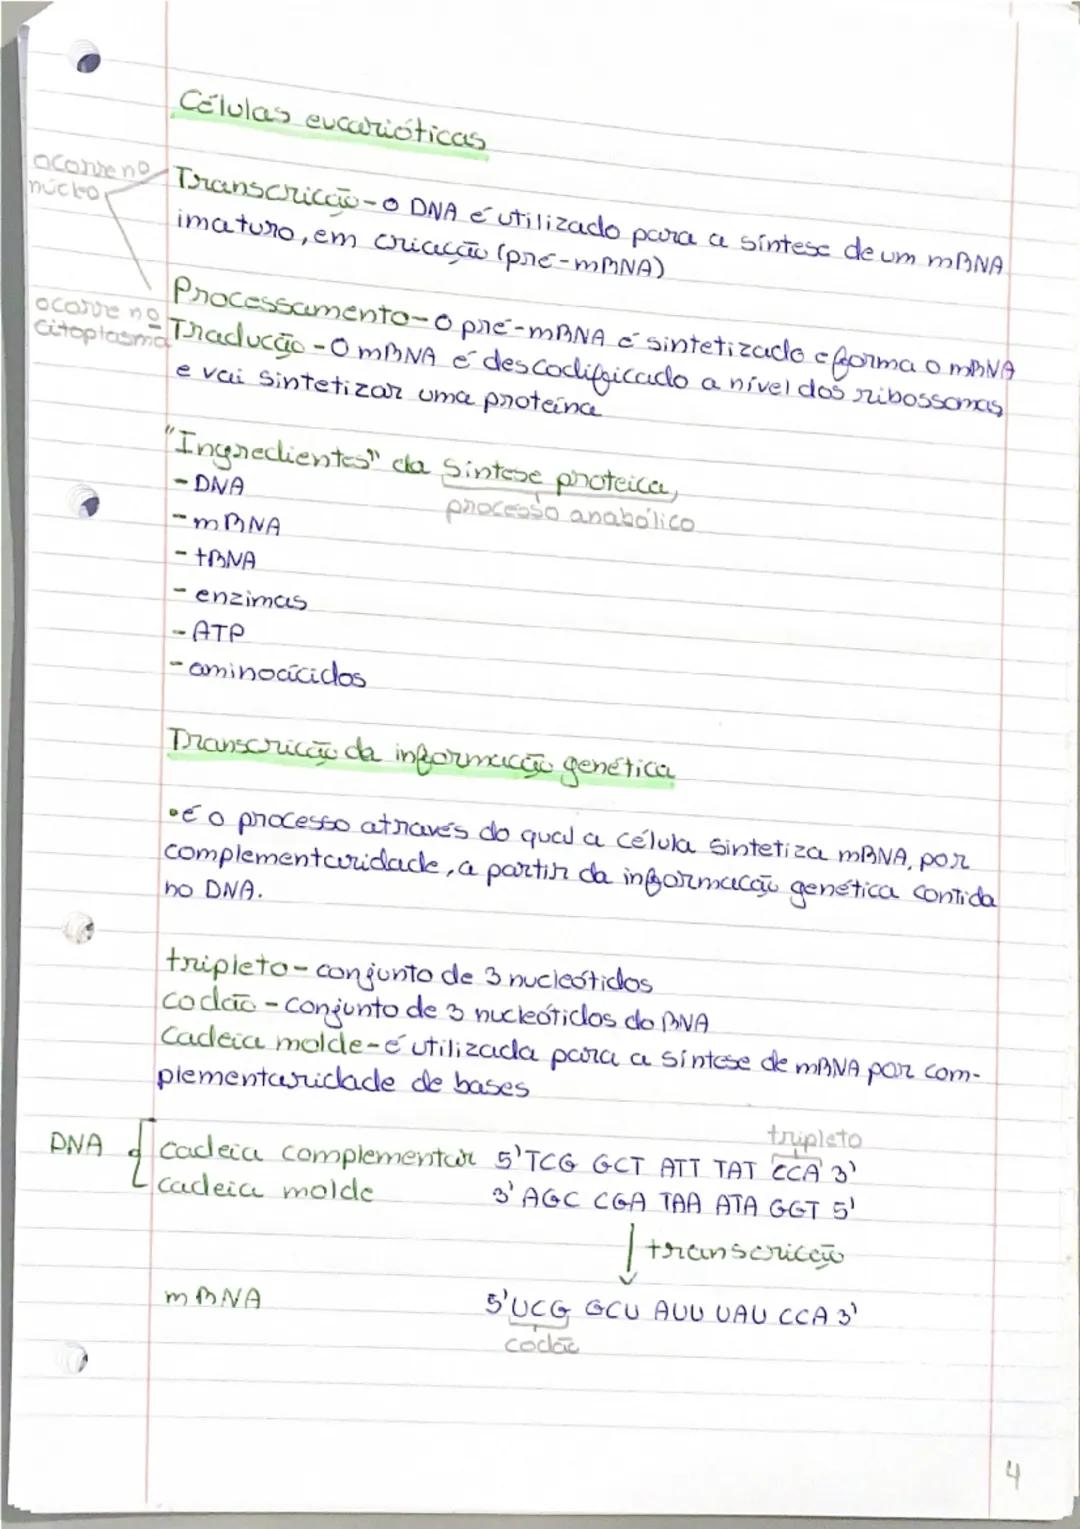 Células eucarióticas
ocorre no
núcleo
Transcrição - o DNA é utilizado para a síntese de um mRNA
imaturo, em criacção (pré-mRNA)
Processamento - o pré-mRNA é sintetizado e forma o mRNA
ocorre no
citoplasma
Tradução - O mRNA é descodificado a nível dos ribossomas
e vai sintetizar uma proteína
"Ingredientes" da síntese proteica,
processo anabólico
- DNA
- mRNA
- tRNA
- enzimas
- ATP
- aminoácidos
Transcrição da informação genética
• é o processo através do qual a célula sintetiza mRNA, por
complementaridade, a partir da informação genética contida
no DNA.
tripleto - conjunto de 3 nucleótidos
codão - conjunto de 3 nucleótidos do RNA
Cadeia molde - é utilizada para a síntese de mRNA por com-
plementaridade de bases
tripleto
DNA { cadeia complementar 5' TCG GCT ATT TAT CCA 3'
cadeia molde 3' AGC CGA TAA ATA GGT 5'
transcrição
mRNA 5' UCG GCU AUU UAU CCA 3'
codão
4